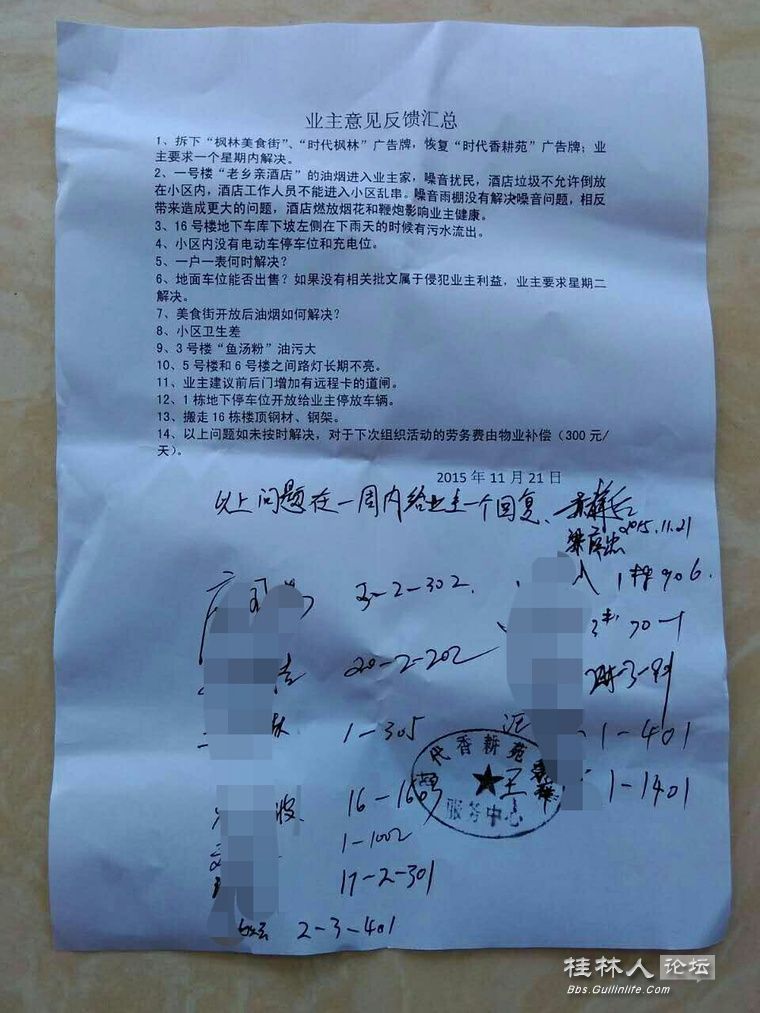 业主意见反馈汇总
1、拆下“枫林美食街”、“时代枫林”广告牌，恢复“时代香耕苑”广告牌；业
主要求一个星期内解决。
2、一号楼“老乡亲酒店”的油烟进入业主家，噪音扰民，酒店垃圾不允许倒放
在小区内，酒店工作人员不能进入小区乱串。噪音雨棚没有解决噪音问题，相反
带来造成更大的问题，酒店燃放烟花和鞭炮影响业主健康。
3、16号楼地下车库下坡左侧在下雨天的时候有污水流出。
4、小区内没有电动车停车位和充电位。
5、一户一表何时解决？
6、地面车位能否出售？如果没有相关批文属于侵犯业主利益，业主要求星期二
解决。
7、美食街开放后油烟如何解决？
8、小区卫生差
9、3号楼“鱼汤粉”油污大
10、5号楼和6号楼之间路灯长期不亮。
11、业主建议前后门增加有远程卡的道闸。
12、1栋地下停车位开放给业主停放车辆。
13、搬走16栋楼顶钢材、钢架。
14、以上问题如未按时解决，对于下次组织活动的劳务费由物业补偿（300元/
天）。
2015年11月21日
以上问题在一周内给业主一个回复、
2015.11.21
3-2-302 1栋906.
20-2-202
1-305 1-401
代香耕苑
16-1603 王 1-1401
服务中心
1-1002
17-2-301
2-3-401
桂林人论坛
Bbs.Guilinlife.Com